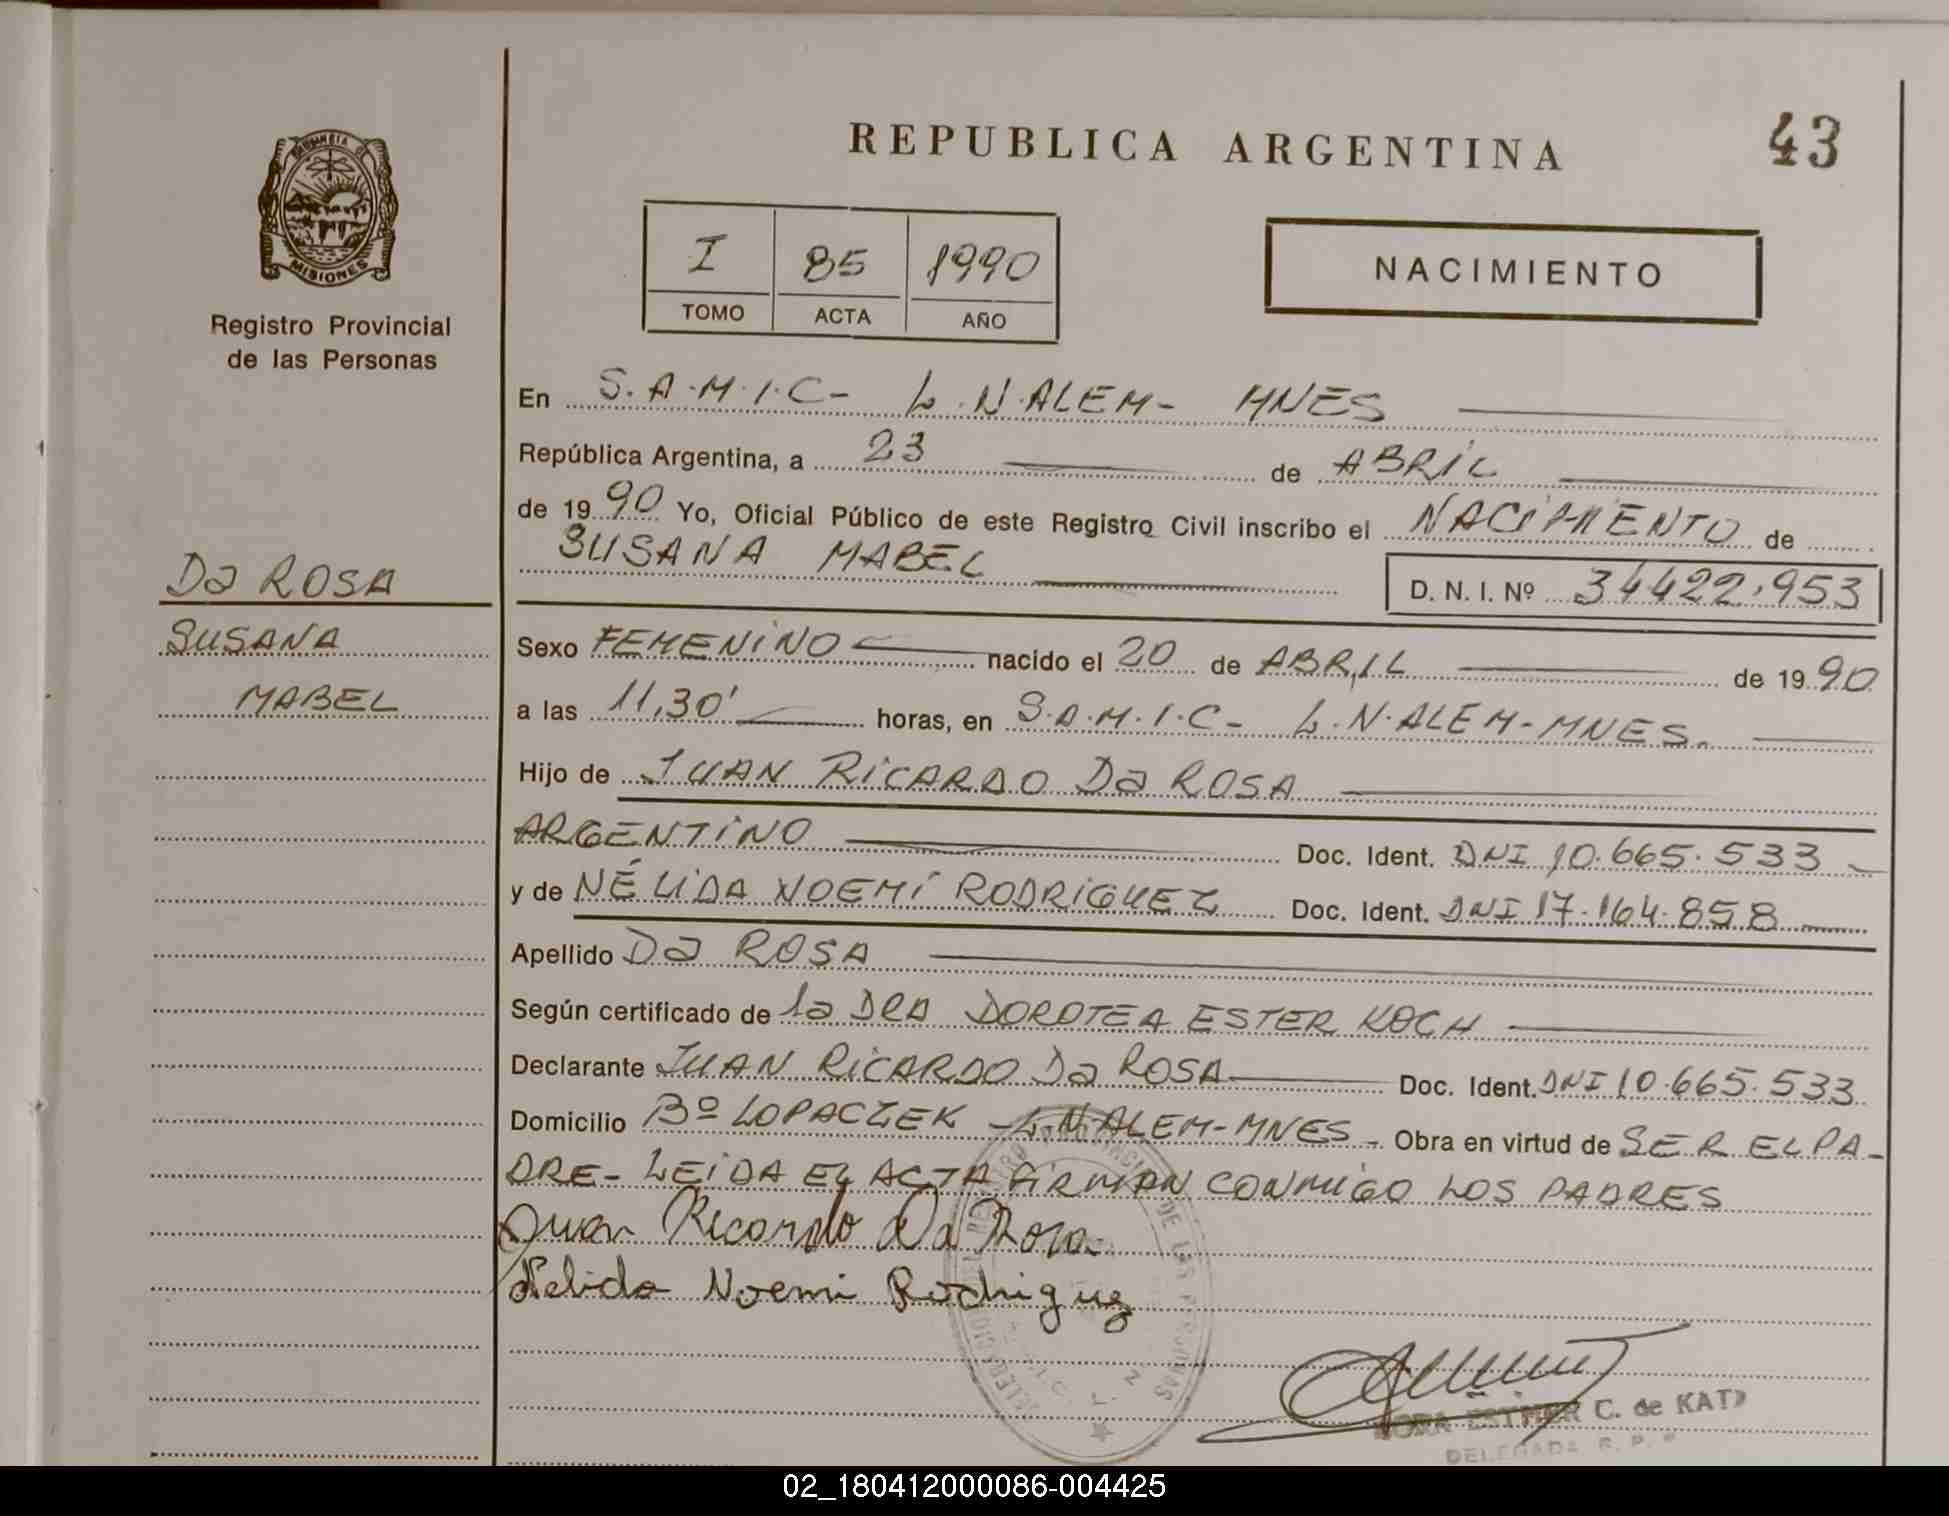 REPUBLICA ARGENTINA
43
PROVINCIA DE
MISIONES
Registro Provincial
de las Personas
I 85 1990
TOMO ACTA AÑO
NACIMIENTO
En S.A.M.I.C- L.N.ALEM- MNES
República Argentina, a 23 de ABRIL
de 1990 Yo, Oficial Público de este Registro Civil inscribo el NACIMIENTO de
SUSANA MABEL
D. N. I. Nº 34422.953
Da ROSA
SUSANA
MABEL
Sexo FEMENINO nacido el 20 de ABRIL de 1990
a las 11,30' horas, en S.A.M.I.C- L.N.ALEM-MNES.
Hijo de JUAN RICARDO Da ROSA
ARGENTINO Doc. Ident. DNI 10.665.533
y de NÉLIDA NOEMÍ RODRIGUEZ Doc. Ident. DNI 17.164.858
Apellido Da ROSA
Según certificado de la DRA DOROTEA ESTER KOCH
Declarante JUAN RICARDO Da ROSA Doc. Ident. DNI 10.665.533
Domicilio Bº LOPACZEK - L.N.ALEM-MNES- Obra en virtud de SER EL PA-
DRE- LEIDA EL ACTA FIRMAN CONMIGO LOS PADRES
Juan Ricardo Da Rosa
Nelida Noemi Rodriguez
ESTHER C. de KATZ
DELEGADA R. P. P.
02_180412000086-004425